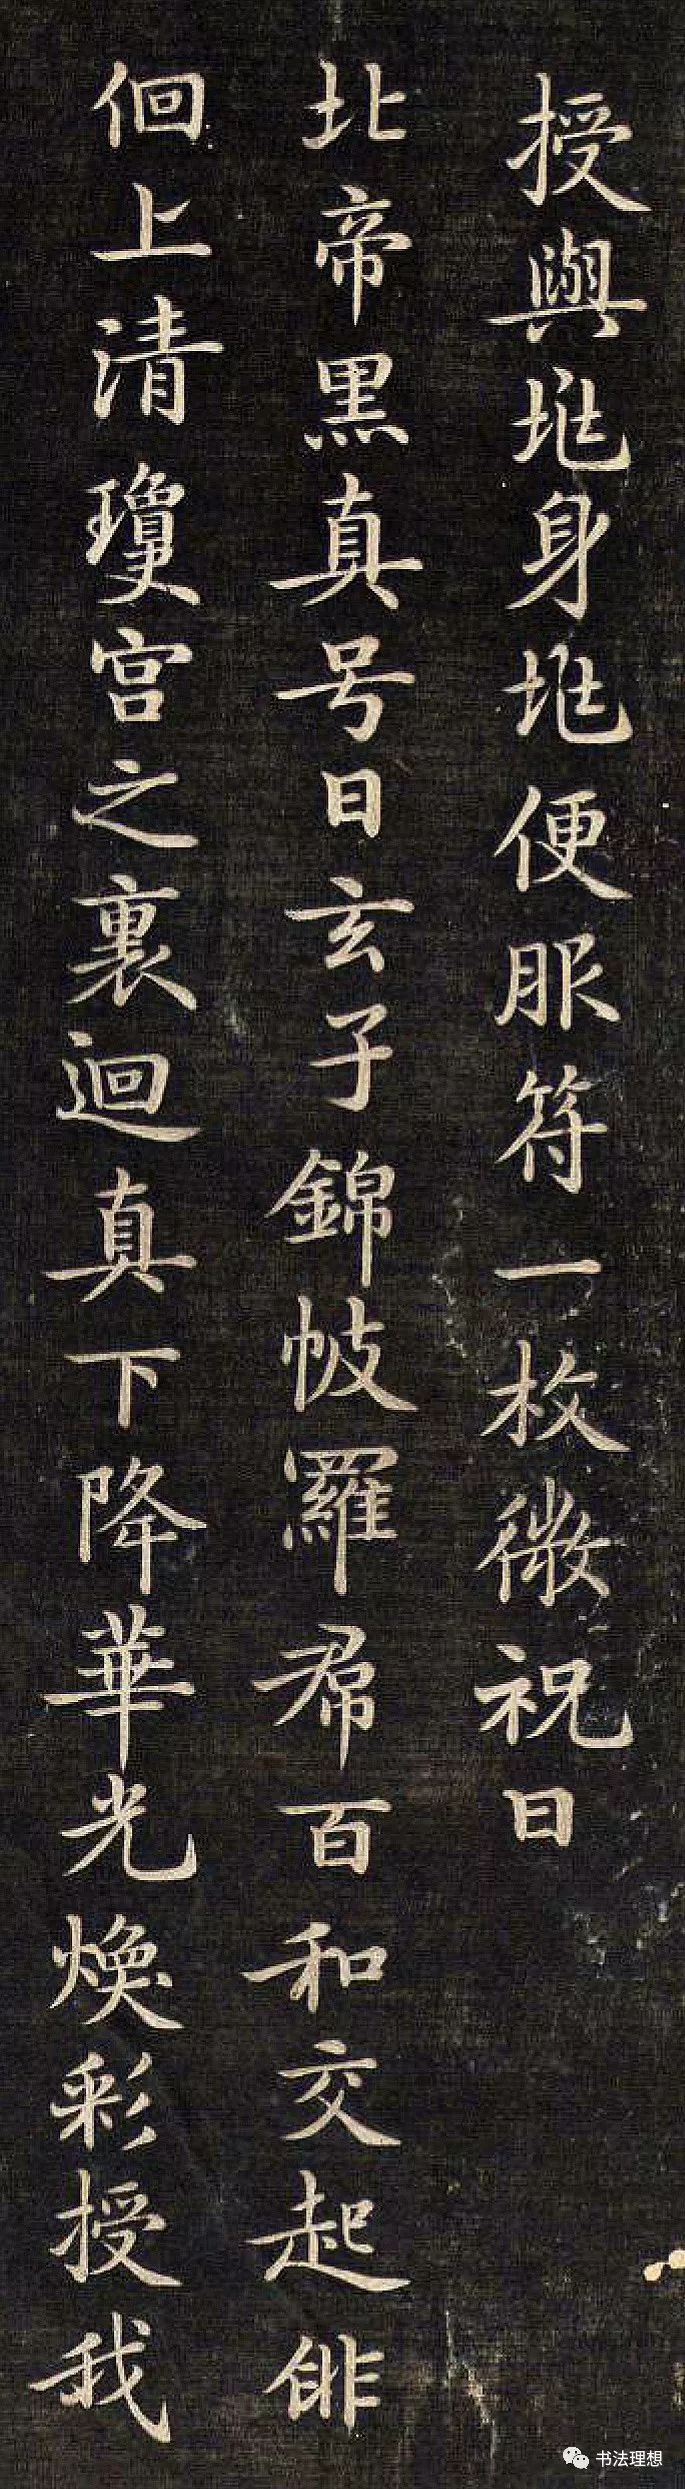 授與兆身兆便服符一枚微祝曰
北帝黑真号曰玄子錦帔羅帬百和交起俳
佪上清瓊宫之裏迴真下降華光煥彩授我
书法理想